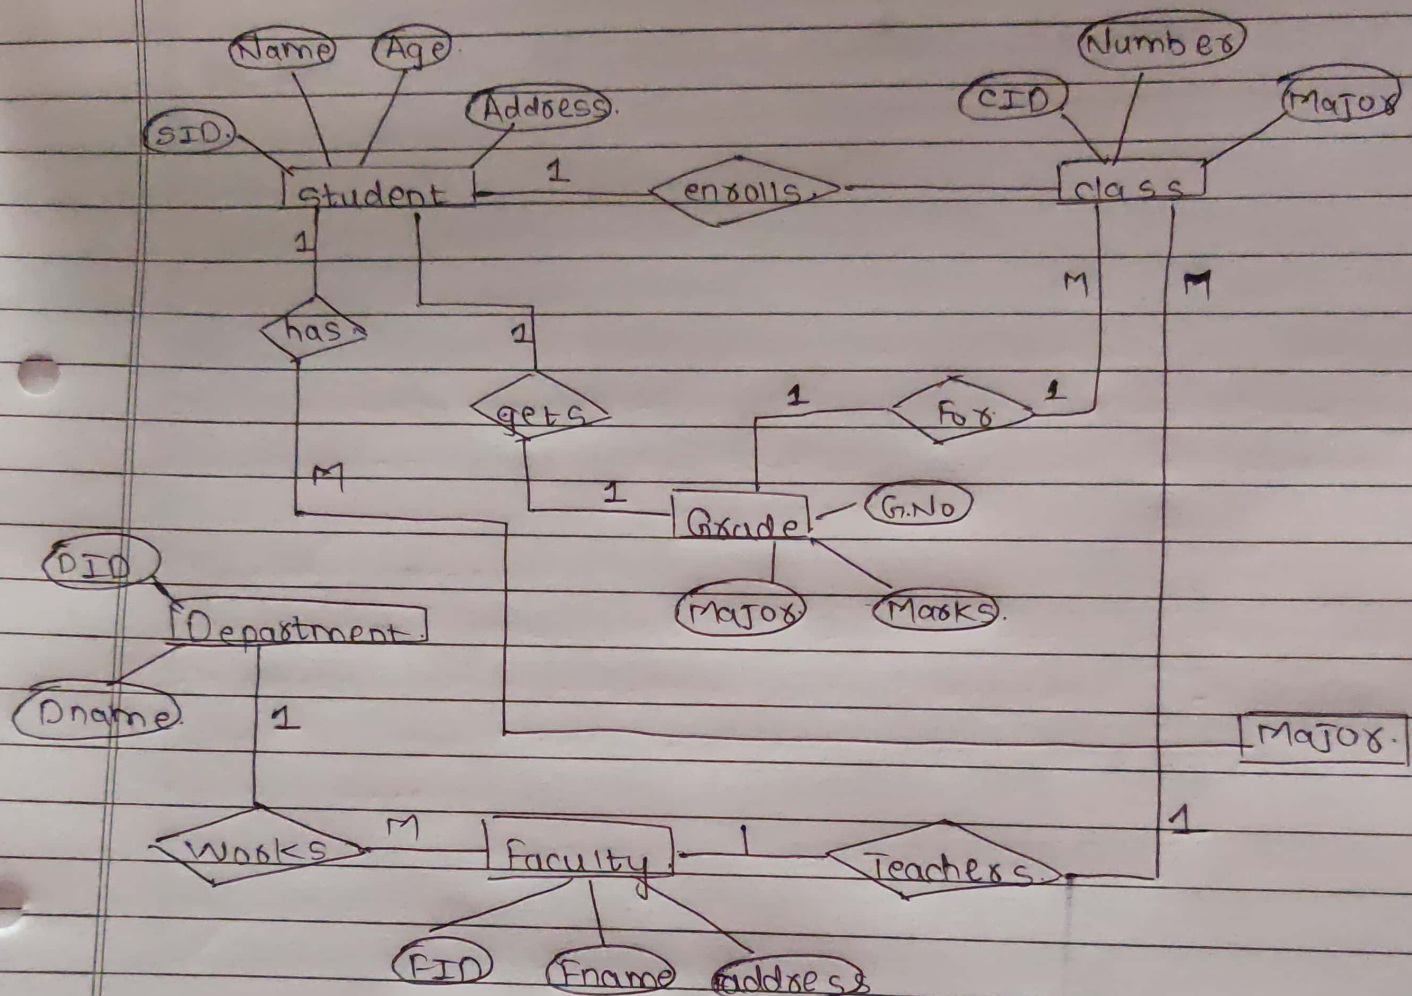 Name Age Number
SID. Address. CID Major
Student 1 enrolls. class
1 M M
has 1
gets 1 For. 1
M 1 Grade G.No
DID Major. Marks.
Department.
Dname. 1 Major.
Works M Faculty 1 Teachers. 1
FID Fname address